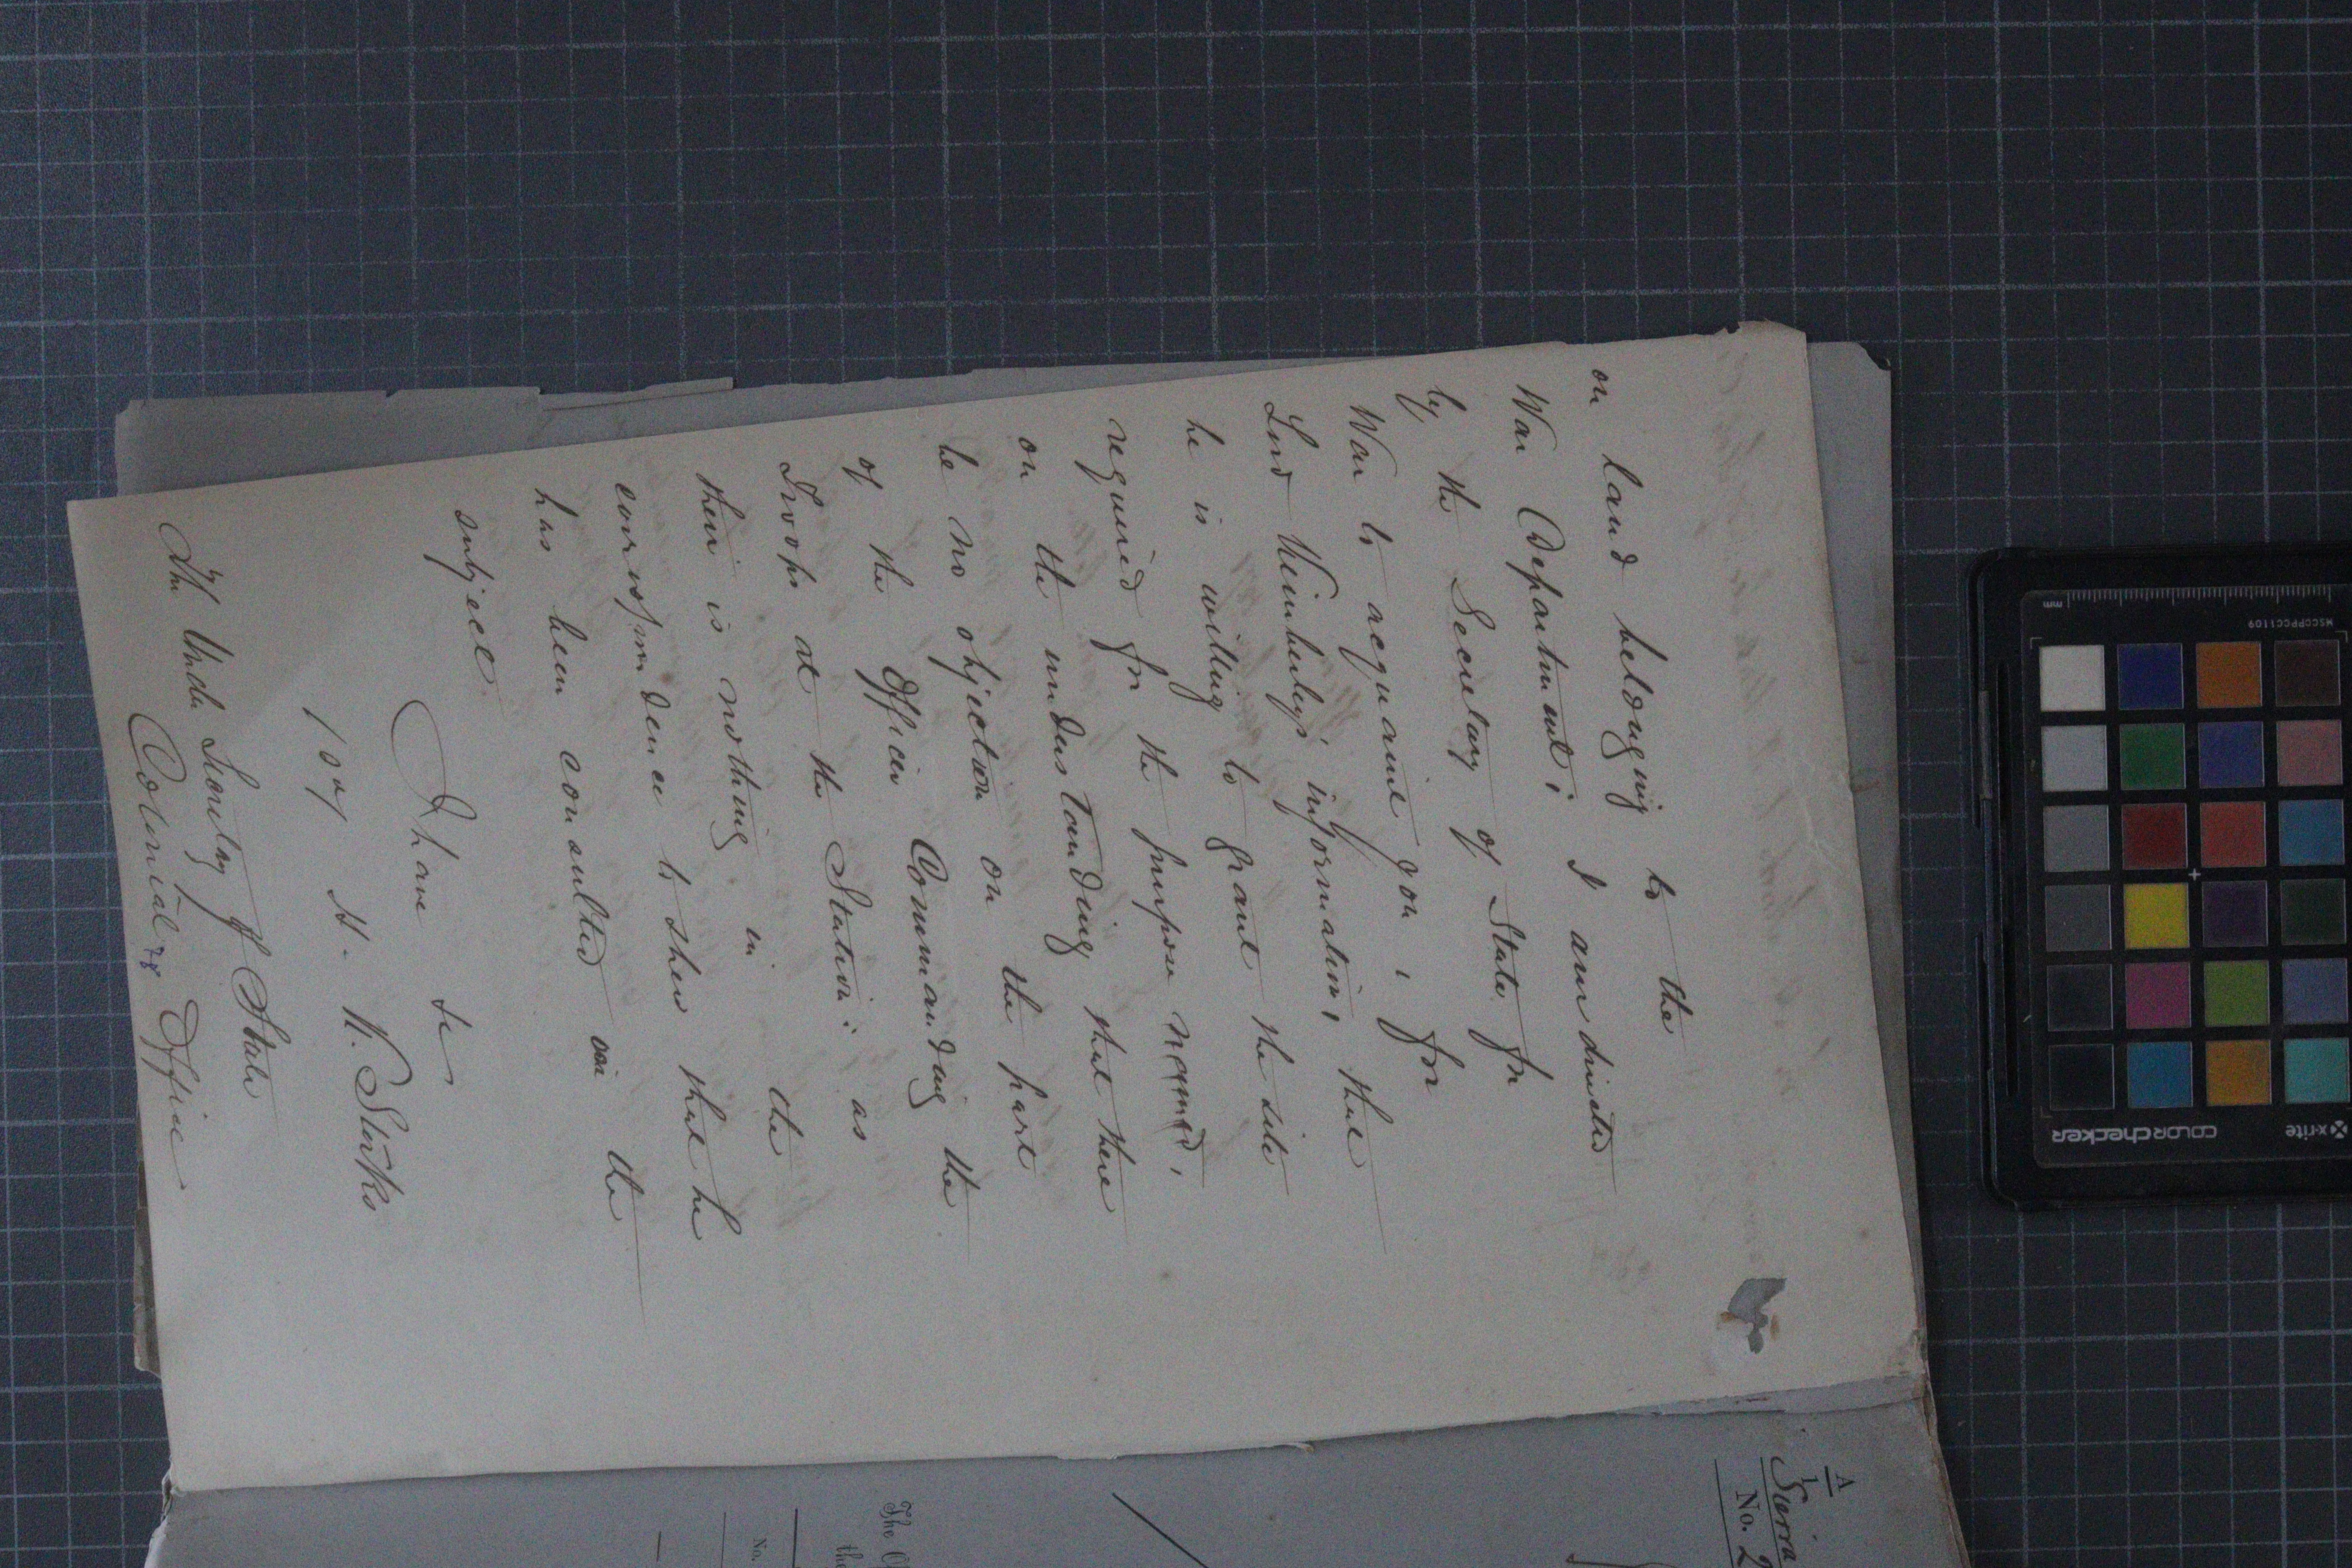 on land belonging to the
War Department; I am directed
by the Secretary of State for
War to acquaint you, for
Lord Kimberley's information, that
he is willing to grant the site
required for the purpose named,
on the understanding that there
be no objection on the part
of the Officer Commanding the
Troops at the Station: as
there is nothing in the
correspondence to shew that he
has been consulted on the
subject.
I have &c
H. K. Storks
The Under Secretary of State
Colonial Office
78
A
1
Sierra
No. 2
The O
the
No.
mm
MSCCPPCC1109
x-rite
colorchecker